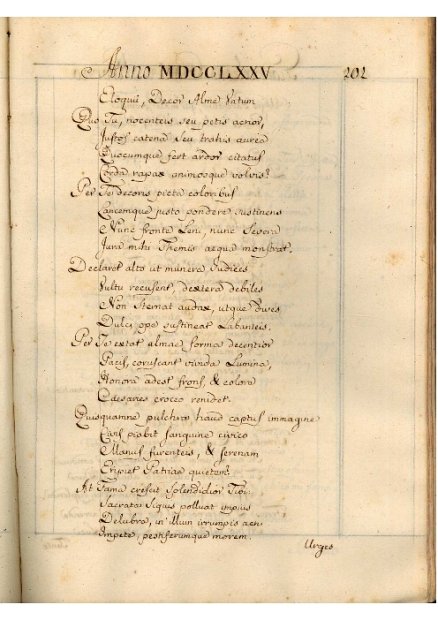 Anno MDCCLXXV 202
Eloquii, Decor Alme Vatum
Quo Tu, nocenteis seu petis acrior,
Justos catena seu trahis aurea
Quocumque fert ardor citatus
Corda rapax animosque volvis?
Per Te decoris picta coloribus
Lancemque justo pondere sustinens
Nunc fronte Leni, nunc Severa
Jura mihi Themis aequa monstrat.
Declarat alto ut munera Judices
Vultu recusent, dextera debiles
Non sternat audax, utque dives
Dulci ope sustineat Labanteis.
Per Te extat almae forma decentior
Pacis, coruscant vivida Lumina,
Honora adest frons, & colore
Caesaries croceo renidet.
Quisquamne pulchra haud captus immagine
Civis piabit sanguine civico
Manus furenteis, & serenam
Eripiet Patriae quietem?
At Fama crescit splendidior Tibi
Sacrata siquis polluat impius
Delubra, in illum irrumpis acri
Impete, pestiferumque morem.
Urges